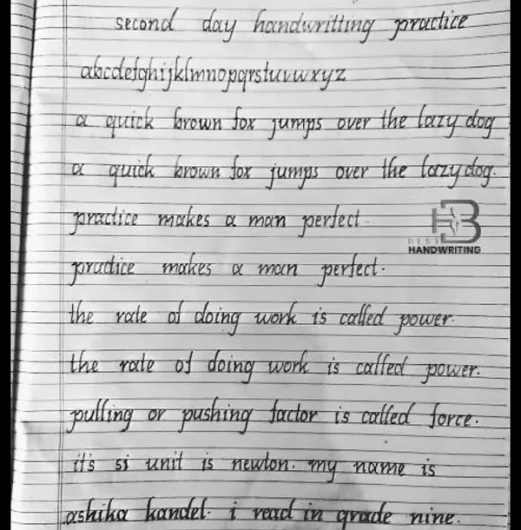 second day handwritting practice
abcdefghijklmnopqrstuvwxyz
a quick brown fox jumps over the lazy dog
a quick brown fox jumps over the lazy dog.
practice makes a man perfect.
HB
BEST
HANDWRITING
practice makes a man perfect.
the rate of doing work is called power.
the rate of doing work is called power.
pulling or pushing factor is called force.
it's si unit is newton. my name is
ashika kandel. i read in grade nine.